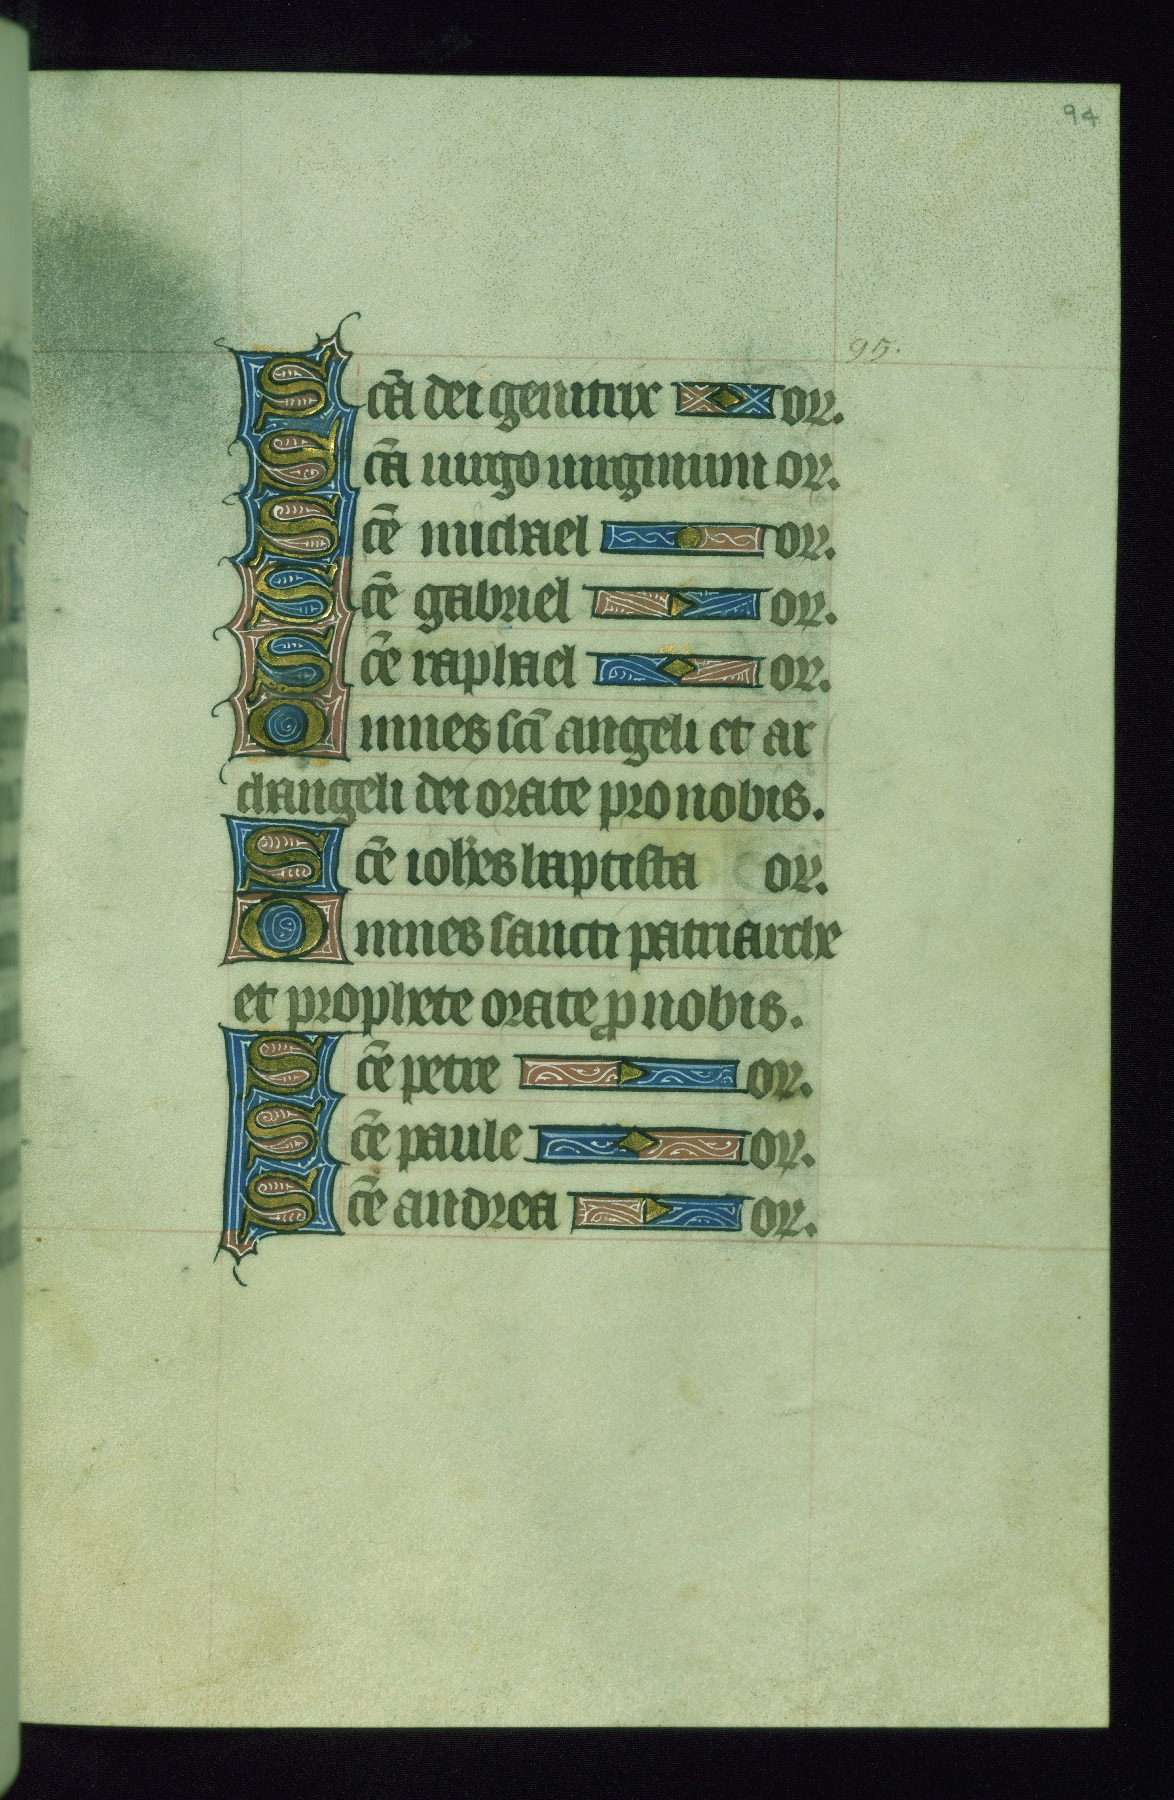 94
95.
Sc̄a dei genitrix or.
Sc̄a uirgo uirginum or.
Sc̄e michael or.
Sc̄e gabriel or.
Sc̄e raphael or.
Omnes sc̄i angeli et ar
changeli dei orate pro nobis.
Sc̄e ioh̄es baptista or.
Omnes sancti patriarche
et prophete orate ꝓ nobis.
Sc̄e petre or.
Sc̄e paule or.
Sc̄e andrea or.